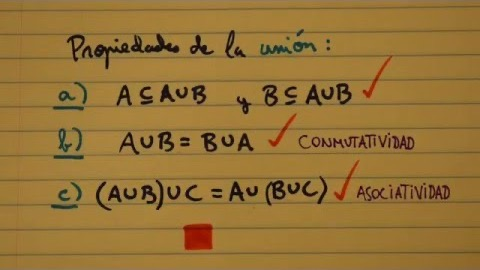 Propiedades de la unión:
a) A ⊆ A∪B y B ⊆ A∪B ✓
b) A∪B = B∪A ✓ CONMUTATIVIDAD
c) (A∪B)∪C = A∪(B∪C) ✓ ASOCIATIVIDAD